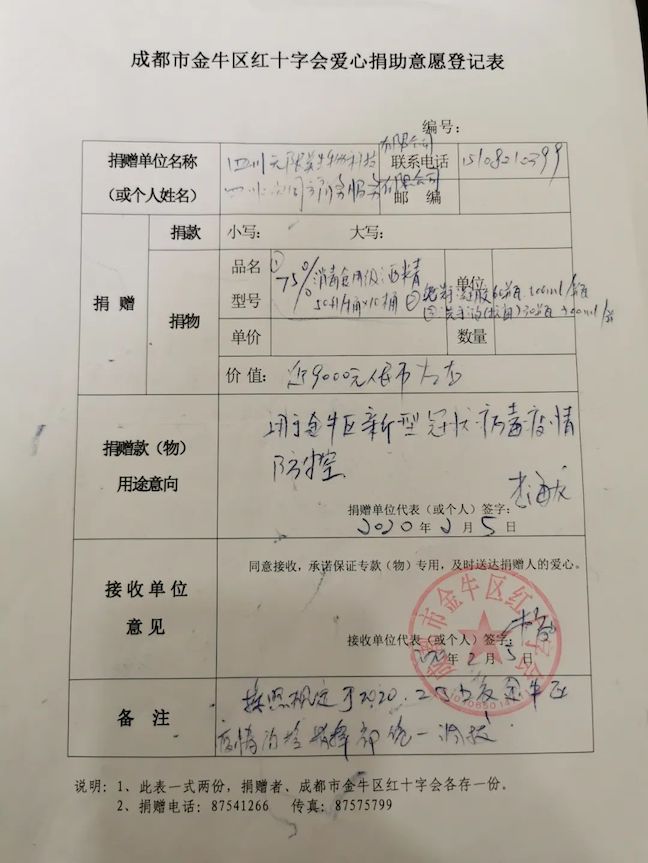 成都市金牛区红十字会爱心捐助意愿登记表
编号：
捐赠单位名称
（或个人姓名）
四川
有限公司
有限公司
联系电话
邮 编
捐 赠
捐款
小写： 大写：
捐物
品名
型号
① 75% 消毒食用级酒精
单位
单价
数量
价 值： 近9000元人民币
捐赠款（物）
用途意向
用于金牛区新型冠状病毒疫情
防控
捐赠单位代表（或个人）签字：
2020年2月5日
接收单位
意见
同意接收，承诺保证专款（物）专用，及时送达捐赠人的爱心。
接收单位代表（或个人）签字：
2020年2月5日
成都市金牛区红十字会
备 注
按照规定于2020.2.5 金牛区
疫情 指挥部统一
说明：1、此表一式两份，捐赠者、成都市金牛区红十字会各存一份。
2、捐赠电话：87541266 传真：87575799